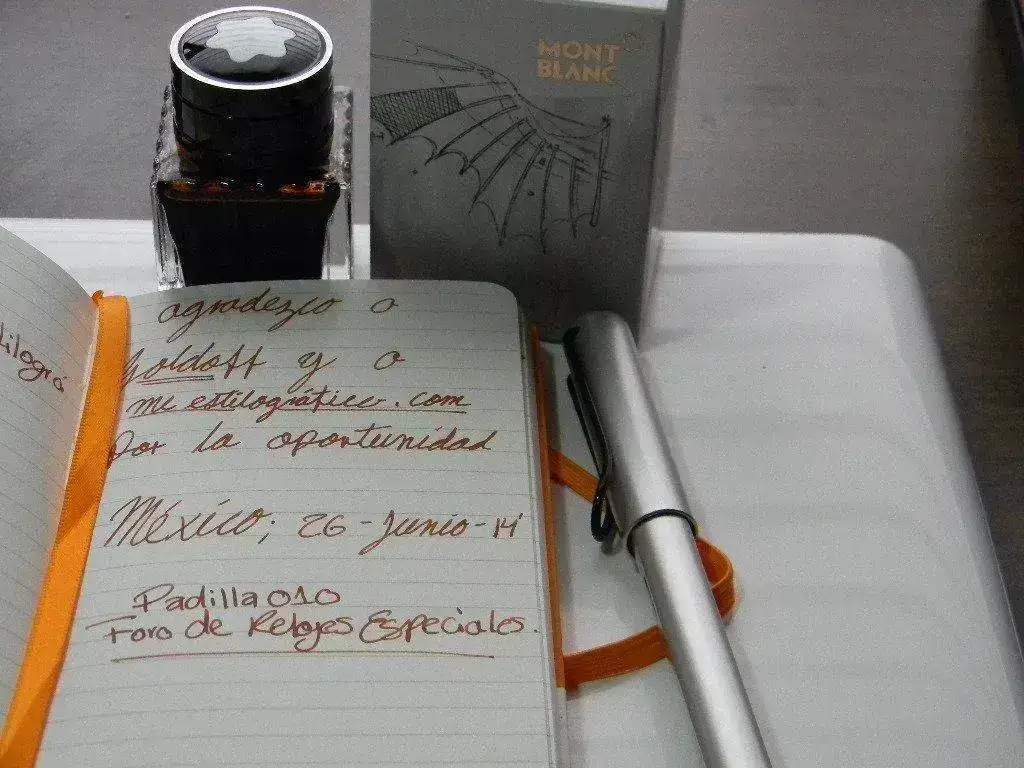 MONT
BLANC
tilográ
agradezco a
Goldoff y a
me estilográfico.com
por la oportunidad
México; 26-Junio-14
Padilla010
Foro de Relojes Especiales.